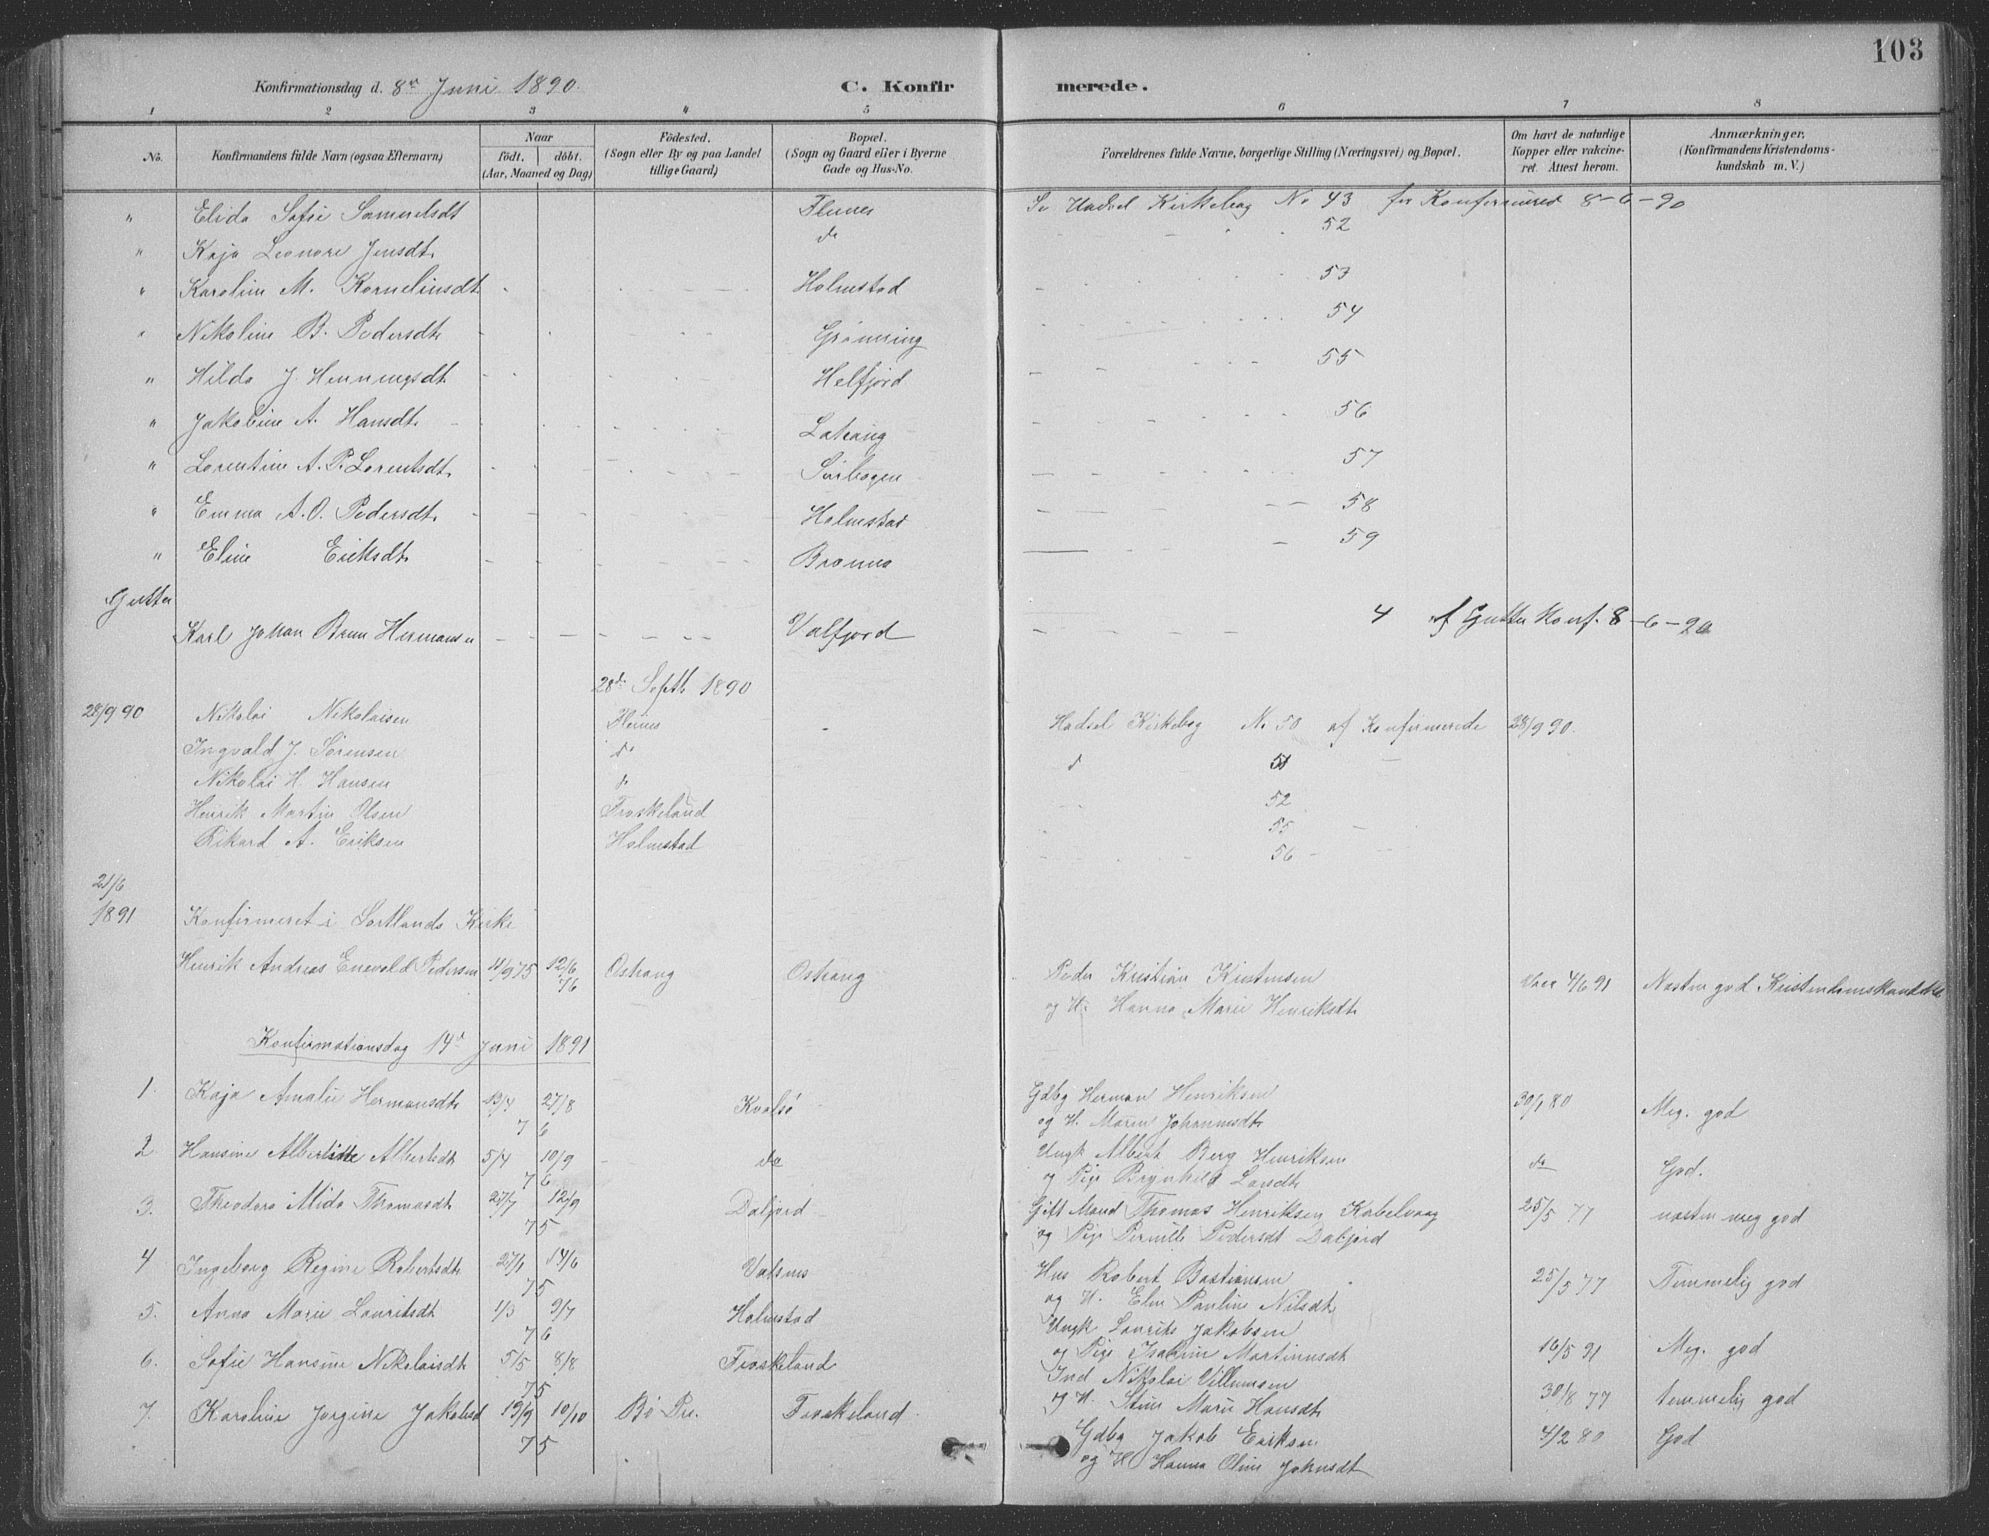 103
Konfirmationsdag d. 8de Juni 1890. C. Konfirmerede.
1 2 3 4 5 6 7 8
No. Konfirmandens fulde Navn (ogsaa Efternavn) Naar født. døbt. (Aar, Maaned og Dag) Fødested. (Sogn eller By og paa Landet tillige Gaard) Bopæl. (Sogn og Gaard eller i Byerne Gade og Hus-No. Forældrenes fulde Navne, borgerlige Stilling (Næringsvei) og Bopæl. Om havt de naturlige Kopper eller vaccineret. Attest herom. Anmærkninger, (Konfirmandens Kristendomskundskab m. V.)
" Elida Sofie Samuelsdt Flenes Se Hadsel Kirkebog No 43 for Konfirmered 8-6-90
" Kaja Leonore Jensdt. do 52
" Karoline M. Korneliusdt. Holmstad 53
" Nikoline B. Pedersdt. Grønning 54
" Hilda J. Henningsdt. Helfjord 55
" Jakobine A. Hansdt. Latrang 56
" Lorentine A. P. Lorentsdt. Sørbogen 57
" Emma A. O. Pedersdt. Holmstad 58
" Eline Eriksdt. Brønna 59
Gutter
Karl Johan Brun Hermansen Valfjord 4 af Gutter Konf. 8-6-90
28de Septb 1890
28/9 90 Nikolai Nikolaisen Flenes Hadsel Kirkebog No 50 af Konfirmerede 28/9 90.
Ingvald J. Sørensen do d 51
Nikolai H. Hansen do 52
Henrik Martin Olsen Froskeland 55
Rikard A. Eriksen Holmstad 56
21/6
1891 Konfirmeret i Sortlands Kirke
Henrik Andreas Enevold Pedersen 11/9 75 12/6 76 Ostrang Ostrang Peder Kristian Kristensen Vacc 4/6 91 Næsten god Kristendomskundsk
og H. Hanna Marie Henriksdt.
Konfirmationsdag 14de Juni 1891
1. Kaja Amalie Hermansdt. 13/4 27/8 Kvalsø Gdbg Herman Henriksen 30/1 80 Meg. god
76 og H. Maren Johannesdt.
2 Hansine Albertine Albertsdt 5/4 10/9 do Ungk Albert Berg Henriksen do God.
76 og Pige Brynhild Larsdt.
3. Theodora Alida Thomasdt 27/7 12/9 Dalfjord Gift Mand Thomas Henriksen Kabelvaag 25/5 77 næsten meg god
75 og Pige Pernille Pedersdt Dalfjord
4 Ingeborg Regine Robertsdt. 27/1 14/6 Vatnes Hus Robert Bastiansen 25/5 77 Temmelig god
75 og H. Elen Pauline Nilsdt.
5. Anna Marie Lauritsdt 1/3 9/7 Holmstad Ungk Laurits Jakobsen 16/5 91 Meg. god
76 og Pige Martinusdt
6. Sofie Hansine Nikolaisdt 5/5 8/8 Froskeland Ind Nikolai Villumsen 30/8 77 temmelig god
75 og H. Stine Marie Hansdt.
7. Karoline Jorgine Jakobsd 19/9 10/10 Bø Froskeland. Gdbg Jakob Eriksen 4/2 80 God
75 og H Hanna Oline Johnsdt